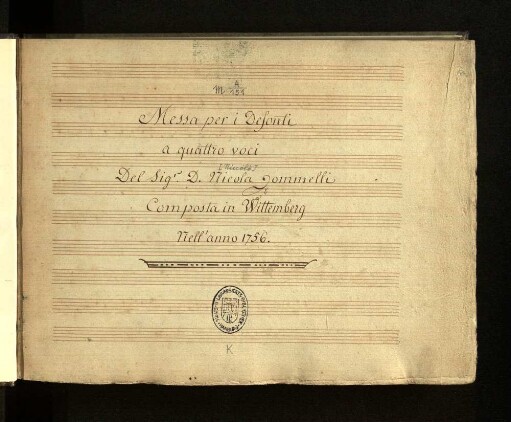 M A
Messa per i Defonti
a quattro voci
[Niccolò]
Del Sigr. D. Nicola Jommelli
Composta in Wittemberg
Nell'anno 1756.
K